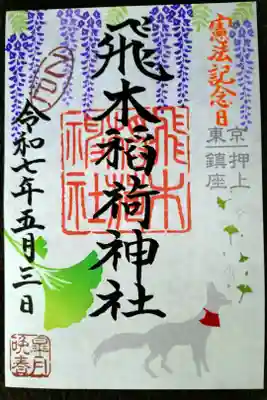 憲法記念日
東京
押上
鎮座
飛木稲荷神社
乙巳
令和七年五月三日
皐月
晩春